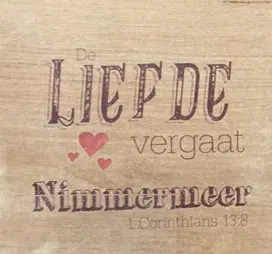 De
LIEFDE
vergaat
Nimmermeer
1 Corinthians 13:8